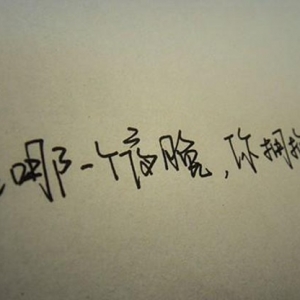 哪一个夜晚，你拥